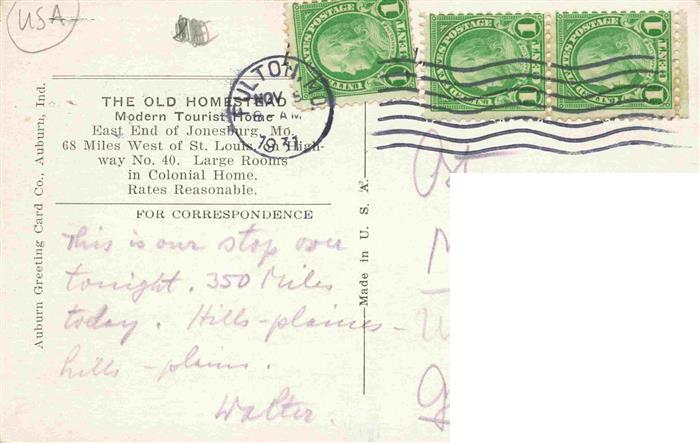 USA
UNITED STATES POSTAGE
1 CENT 1
UNITED STATES POSTAGE
1 CENT 1
UNITED STATES POSTAGE
1 CENT 1
FULTON, MO.
NOV 5
AM
1931
THE OLD HOMESTEAD
Modern Tourist Home
East End of Jonesburg, Mo.
68 Miles West of St. Louis, on High-
way No. 40. Large Rooms
in Colonial Home.
Rates Reasonable.
FOR CORRESPONDENCE
This is our stop over
tonight. 350 Miles
today. Hills - plaines -
hills - plains.
Walter.
Auburn Greeting Card Co., Auburn, Ind.
Made in U. S. A.